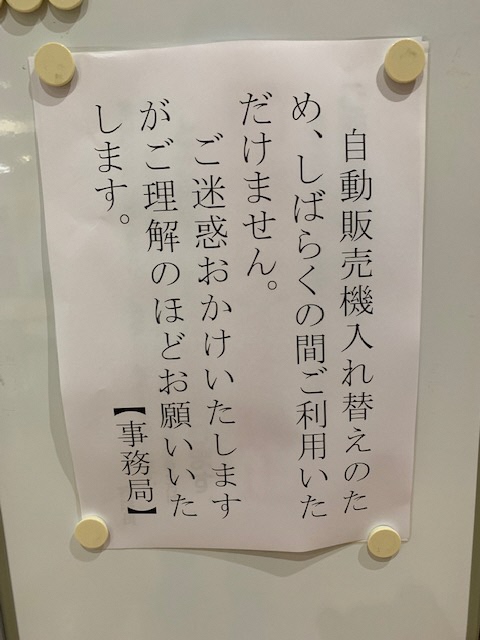 自動販売機入れ替えのた
め、しばらくの間ご利用いた
だけません。
ご迷惑おかけいたします
がご理解のほどお願いいた
します。
【事務局】